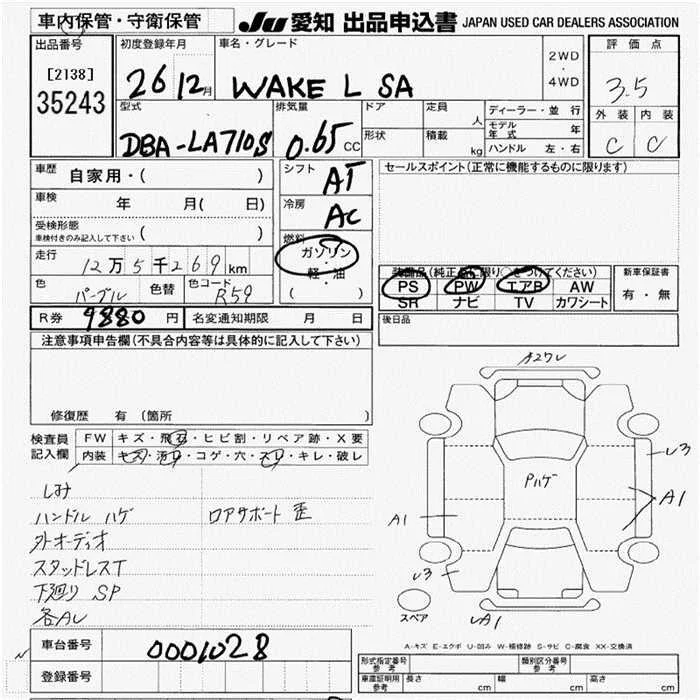 車内保管・守衛保管 JU 愛知 出品申込書 JAPAN USED CAR DEALERS ASSOCIATION
出品番号 初度登録年月 車名・グレード 評価点
[2138] 35243
26 12月 WAKE L SA 2WD・4WD 3.5
型式 排気量 ドア 定員 人 ディーラー・並行 外装 内装
DBA-LA710S 0.65 CC 形状 積載 kg モデル年式 年 C C
ハンドル 左・右
車歴 自家用・( ) シフト AT セールスポイント(正常に機能するものに限ります)
車検 年 月( 日) 冷房 AC
受検形態 車検付きのみ記入して下さい ( )
燃料 ガソリン・軽・油 ( )
走行 12万5千269km
色 パープル 色替 色コード R59
装備品(純正品に限り○をつけてください) 新車保証書
PS PW エアB AW 有・無
SR ナビ TV カワシート
R券 9880円 名変通知期限 月 日 後日品
注意事項申告欄(不具合内容等は具体的に記入して下さい)
修復歴 有 (箇所 )
検査員記入欄 FW キズ・飛石・ヒビ割・リペア跡・X要
内装 キズ・汚れ・コゲ・穴・スレ・キレ・破レ
しみ
ハンドル ハゲ ロアサポート 歪
外オーディオ
スタッドレスT
下廻り SP
各AU
A2ワレ
U3
Pハゲ
A1
A1
U3
UA1
スペア
A-キズ E-エクボ U-凹み W-補修跡 S-サビ C-腐食 XX-交換済
車台番号 0001028
登録番号
型式指定番号 参考 類別区分番号 参考
車庫証明用 参考 長さ cm 幅 cm 高さ cm